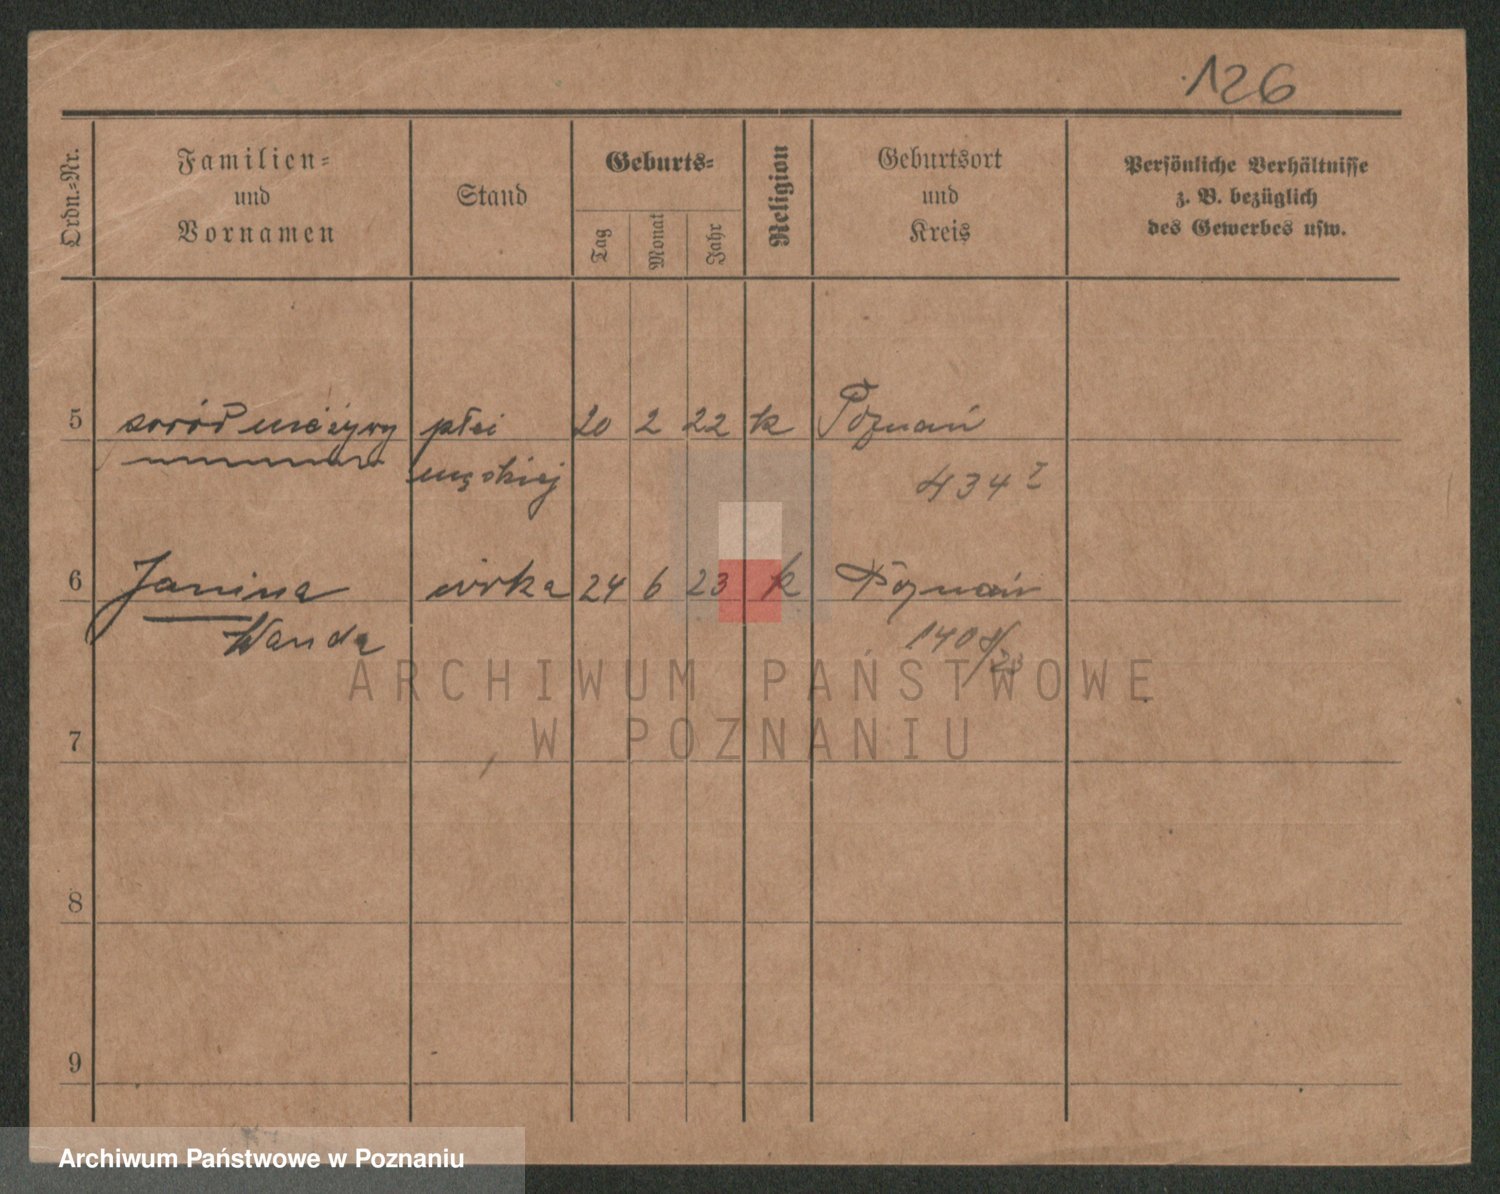 126
Ordn.-Nr.
Familien-
und
Vornamen
Stand
Geburts-
Tag
Monat
Jahr
Religion
Geburtsort
und
Kreis
Persönliche Verhältnisse
z. B. bezüglich
des Gewerbes usw.
5 nieżywy płci 20 2 22 k Poznań
męskiej 434
6 Janina córka 24 6 23 k Poznań
Wanda 1408/23
ARCHIWUM PAŃSTWOWE
W POZNANIU
7
8
9
Archiwum Państwowe w Poznaniu